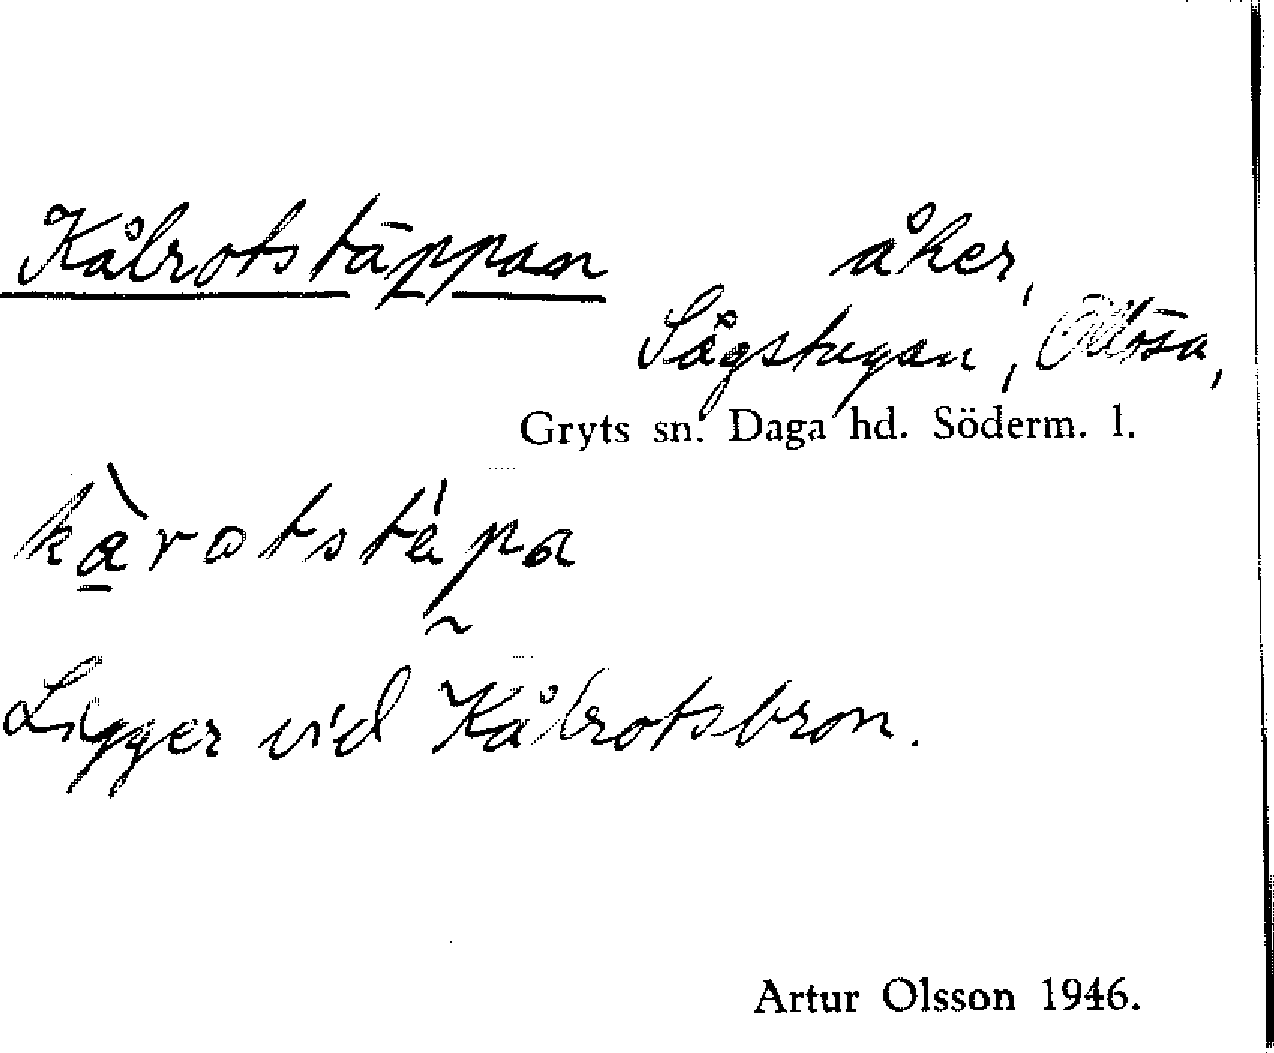 Kålrotstäppan åker,
Sågstugan, Ottösa,
Gryts sn. Daga hd. Söderm. l.
Ligger vid Kålrotsbron.
Artur Olsson 1946.